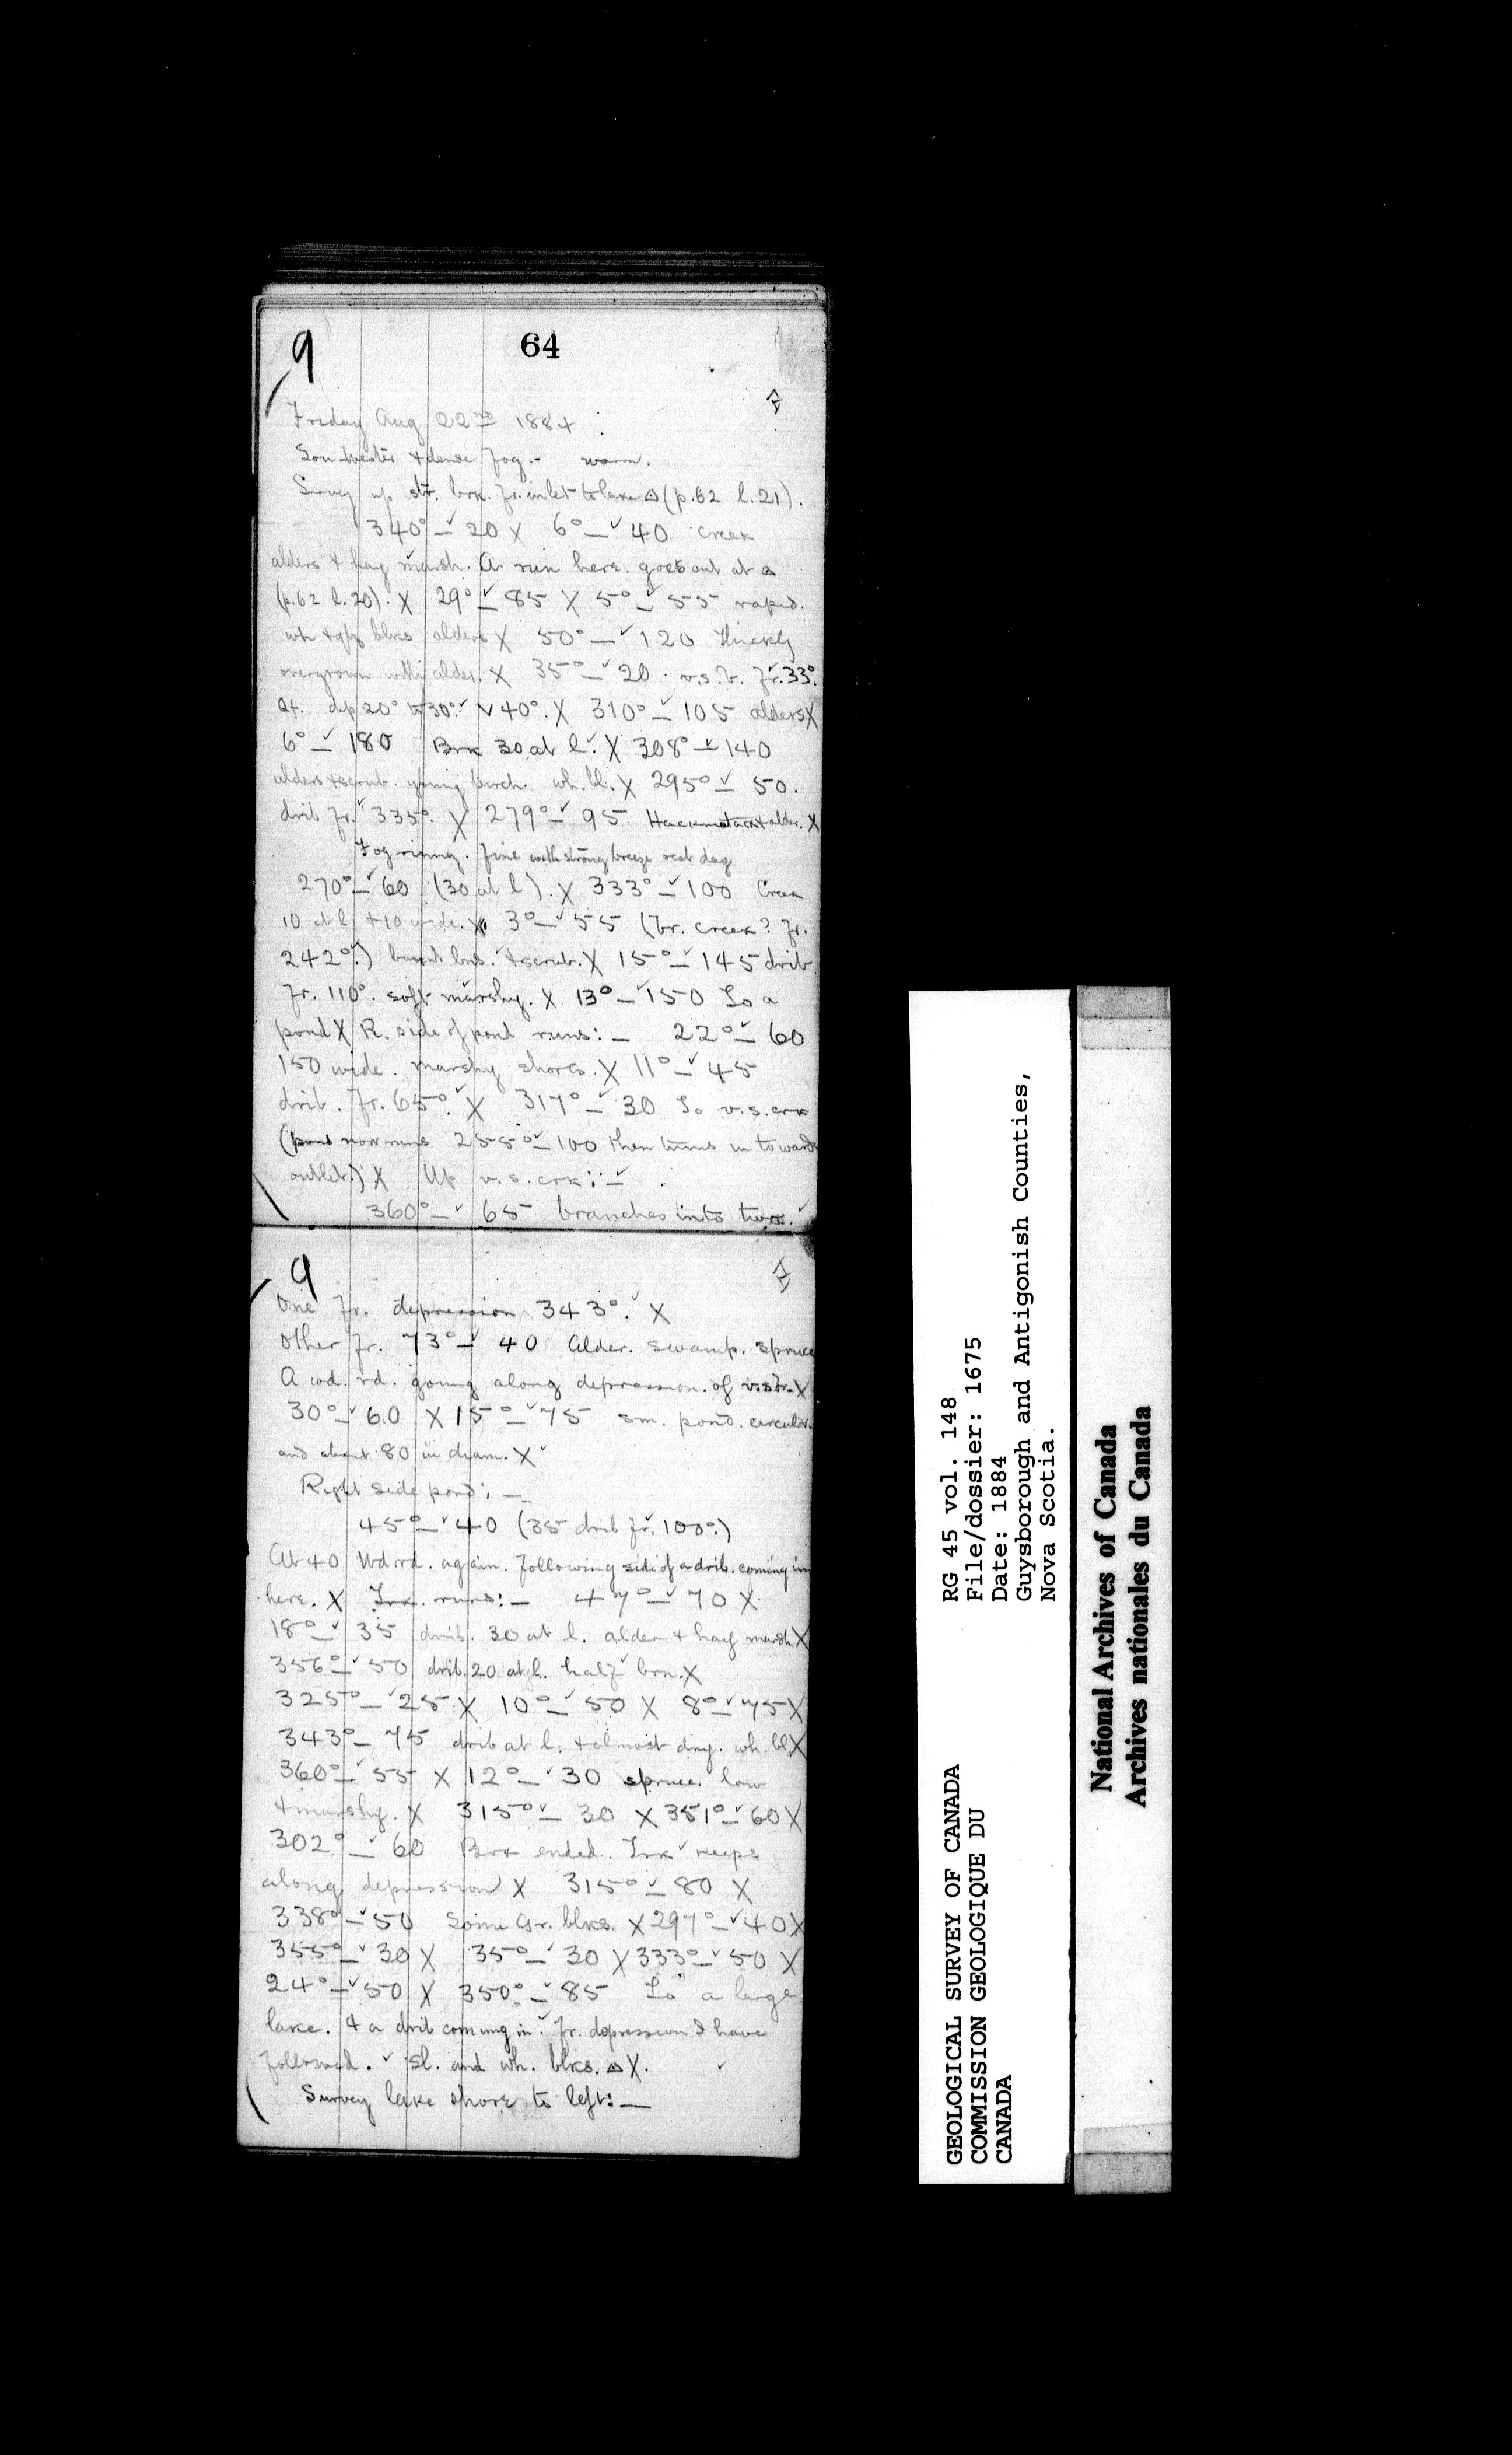 9
64
Friday Aug 22nd 1884
Sou-wester & dense fog. - warm.
Survey up str. brk. fr. inlet to lake △ (p.62 l.21).
340°— ✓ 20 X 6°— ✓ 40 creek
alders & hay marsh. A run here. goes out at △
(p.62 l.20). X 29° ✓— 85 X 5°— ✓ 55 rapid.
wh blks alders X 50°— ✓ 120 thickly
overgrown with alder. X 35°— ✓ 20. v.s.b. fr. 33°.
dip 20° to 30°. ✓ 40°. X 310°— ✓ 105 alders X
6°— ✓ 180 Brk 30 at l. X 308°— ✓ 140
alders & scrub. young birch. wh. bl. X 295°— ✓ 50.
drib fr. 335°. X 279°— ✓ 95 Hackmatack & alder. X
Fog rising. fine with strong breeze rest day
270°— ✓ 60 (30 at l). X 333°— ✓ 100 Creek
10 at l. & 10 wide. X 3°— ✓ 55 (br. creek? fr.
242°.) burnt & scrub. X 15°— ✓ 145 drib
fr. 110°. soft marshy. X 13°— ✓ 150 To a
pond X R. side of pond runs:— 22°— ✓ 60
150 wide. marshy shores. X 11°— ✓ 45
drib. fr. 65°. X 317°— ✓ 30 To v.s. crk
(pond now runs 255°— ✓ 100 then turns in towards
outlet.) X Up v.s. crk:—
360°— ✓ 65 branches into two.
9
One fr. depression 343°. X
Other fr. 73°— ✓ 40 Alder. swamp. spruce
A wd. rd. going along depression. of v.str. X
30°— ✓ 60 X 15°— ✓ 75 sm. pond. circular.
and about 80 in diam. X
Right side pond:—
45°— ✓ 40 (35 drib fr. 100°.)
At 40 Wd rd. again. following side of a drib. coming in
here. X Trk. runs:— 47°— ✓ 70 X
18°— ✓ 35 drib. 30 at l. alder & hay marsh X
356°— ✓ 50 drib. 20 at l. half brn. X
325°— ✓ 25 X 10°— ✓ 50 X 8°— ✓ 75 X
343°— 75 drib at l. & almost dry. wh. bl X
360°— ✓ 55 X 12°— ✓ 30 spruce. low
& marshy. X 315°— ✓ 30 X 351°— ✓ 60 X
302°— ✓ 60 Brk ended. Trk keeps
along depression X 315°— ✓ 80 X
338°— ✓ 50 Some gr. blks. X 297°— ✓ 40 X
355°— ✓ 30 X 35°— ✓ 30 X 333°— ✓ 50 X
24°— ✓ 50 X 350°— ✓ 85 To a large
lake. & a drib coming in. fr. depression I have
followed. ✓ Sl. and wh. blks. △ X.
Survey lake shore to left:—
GEOLOGICAL SURVEY OF CANADA
COMMISSION GEOLOGIQUE DU
CANADA
RG 45 vol. 148
File/dossier: 1675
Date: 1884
Guysborough and Antigonish Counties,
Nova Scotia.
National Archives of Canada
Archives nationales du Canada